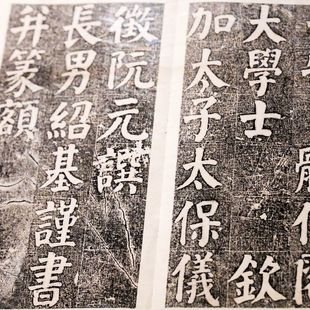 體仁閣
大學士 欽
加太子太保儀
徵阮元譔
長男紹基謹書
并篆額